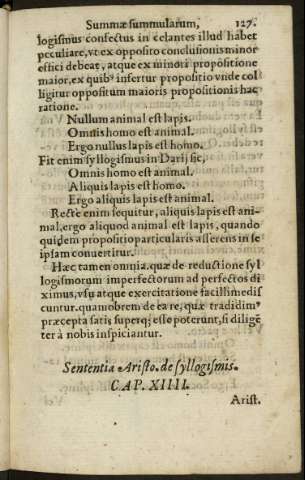 Summæ summularum, 127.
logismus confectus in celantes illud habet
peculiare, vt ex opposito conclusionis minor
effici debeat, atque ex minori propositione
maior, ex quibꝰ infertur propositio vnde col
ligitur oppositum maioris propositionis hac
ratione.
Nullum animal est lapis.
Omnis homo est animal.
Ergo nullus lapis est homo.
Fit enim syllogismus in Darij sic,
Omnis homo est animal.
Aliquis lapis est homo.
Ergo aliquis lapis est animal.
Recte enim sequitur, aliquis lapis est ani-
mal, ergo aliquod animal est lapis, quando
quidem propositio particularis asserens in se
ipsam conuertitur.
Hæc tamen omnia. quæ de reductione syl
logismorum imperfectorum ad perfectos di
ximus, vsu atque exercitatione facillime dis
cuntur. quamobrem de ea re, quæ tradidimꝰ
præcepta satis superq; esse poterunt, si diligē
ter à nobis inspiciantur.
Sententia Aristo. de syllogismis.
CAP. XIIII.
Arist.